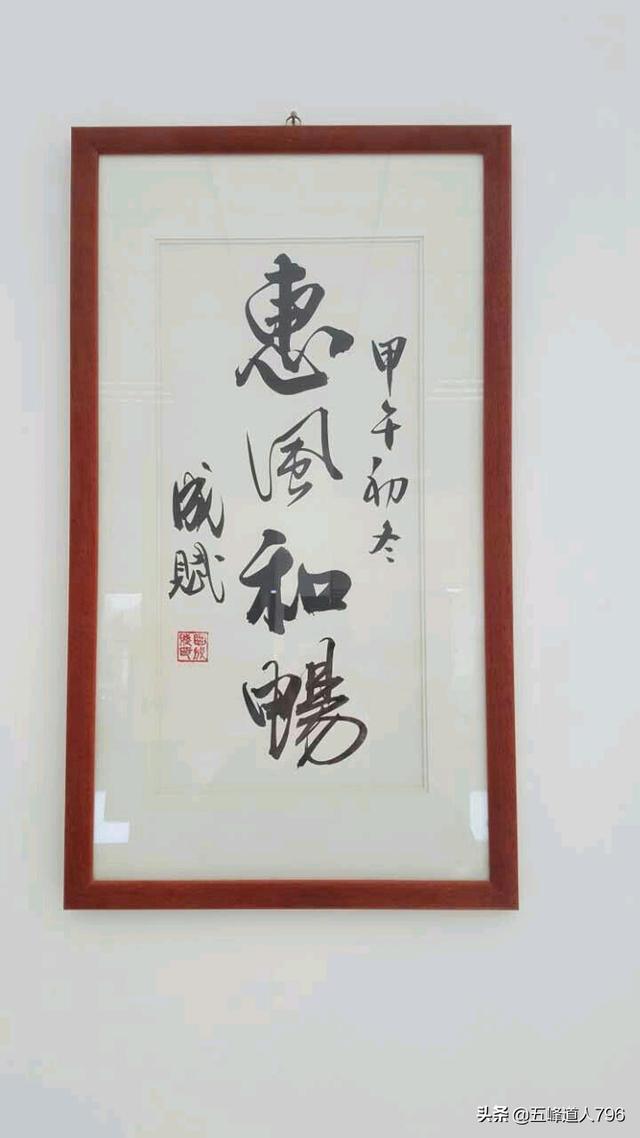 甲午初冬
惠風和暢
成賦
头条 @五峰道人796